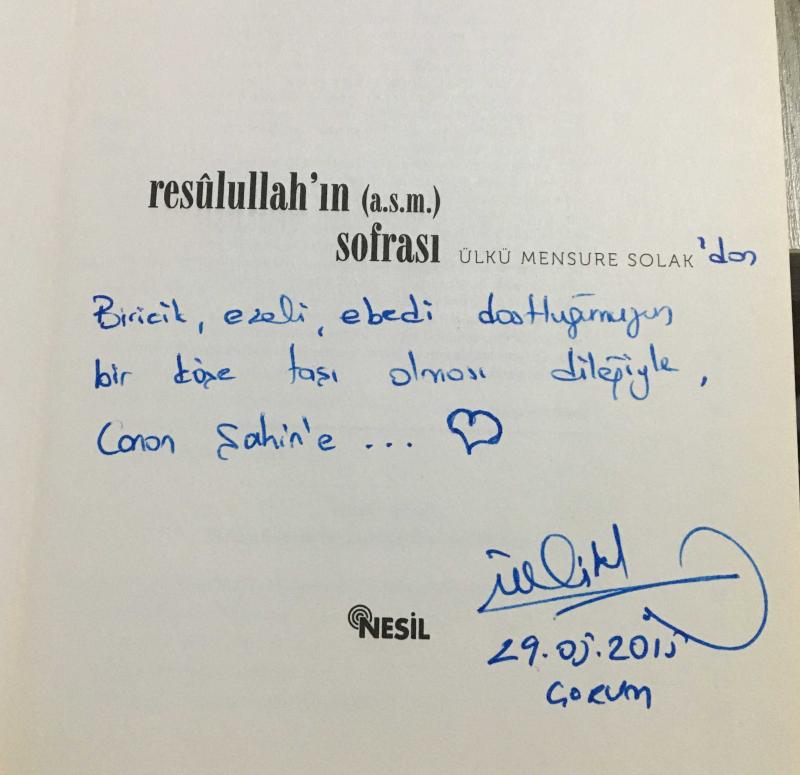 resûlullah'ın (a.s.m.)
sofrası ÜLKÜ MENSURE SOLAK'dan
Biricik, ezeli, ebedi dostluğumuzun
bir köşe taşı olması dileğiyle,
Canan Şahin'e ...
NESİL
29.05.2015
ÇORUM